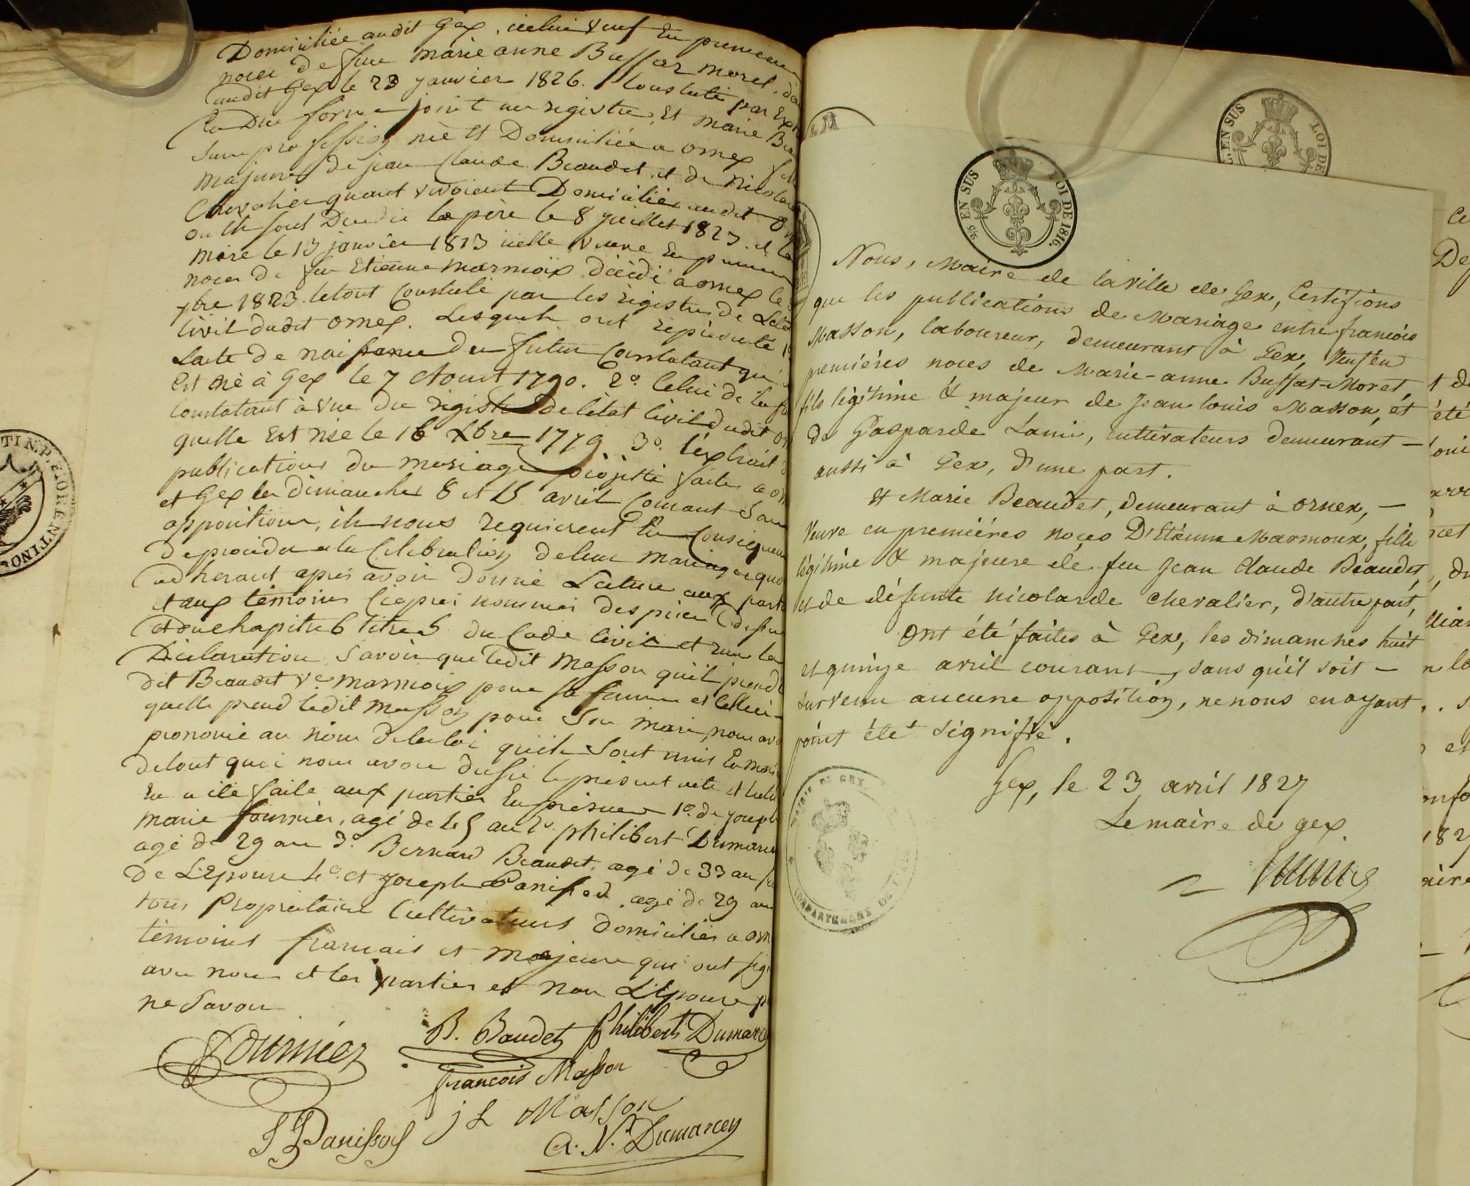 Domiciliée audit Gex, icelui veuf En premieres
noces de feue marie anne Buffaz morel, 
audit Gex le 23 janvier 1826. Constaté par Ext
En Due forme joint au registre, Et Marie Be
sans profession née Et Domiciliée a ornex fille
majeure de jean Claude Beaudet et de Nicolard
Chevalier quant vivoient Domiciliés audit Or
ou ils sont Décédés le père le 8 juillet 1823. et la
mère le 13 janvier 1813 icelle veuve En premiere
noces de feu Etienne marmoix décédé à ornex le
7bre 1823. le tout Constaté par les registres de L'état
Civil dudit ornex. Lesquels ont représenté 1º
L'acte de naissance du futur Constatant qu'il
Est né à Gex le 7 Aoust 1790. 2º. Celui de la fu
Constatant à vue du registre de l'état Civil dudit or
quelle Est née le 16 Xbre 1779 3º. l'extrait d
publications du mariage projetté faites a or
et Gex les dimanches 8 et 15 avril Courant sans
opposition, ils nous requierent En Conséquen
De procéder a la Célébration de leur mariage a quoi
adherant, après avoir donné Lecture aux partie
et aux témoins Ciaprès nommés des pièces Cidessu
et du chapitre 6 titre 5 du Code Civil et reçu la
Déclaration, savoir que ledit Masson qu'il prend la
dit Beaudet ve marmoix pour sa femme et celleci
quelle prend ledit Masson pour son mari, nous avo
prononcé au nom de la loi qu'ils sont unis En mari
de tout quoi nous avons dressé le présent acte et lectu
En a été faite aux parties En présence 1º. de joseph
marie fournier, agé de 45 ans 2º philibert Dumarc
agé de 29 ans 3º. Bernard Beaudet, agé de 33 ans fr
De L'Epouse 4º. et joseph Panissod, agé de 29 ans
tous Propriétaire Cultivateurs domiciliés a orn
témoins francais et majeurs qui ont sig
avec nous et les parties et non L'Epouse p
ne savoir
Fournier
B. Baudet
Philibert Dumarc
françois Masson
J L Masson
J Panissod
A. N. Dumarcey
TI N. P. FLORENTINO
EN SUS
LOI DE
EN SUS
LOI DE 1816.
Nous, Maire de la ville de Gex, Certifions
que les publications de Mariage entre françois
Masson, laboureur, demeurant à Gex, Veuf en
premières noces de Marie-anne Buffat-Moret,
fils légitime & majeur de Jean louis Masson, et
de Gasparde Lami, cultivateurs demeurant —
aussi à Gex, d'une part.
Et Marie Beaudet, demeurant à ornex, —
Veuve en premières noces D'Etienne Marmoux, fille
légitime & majeure de feu Jean Claude Beaudet,
et de défunte nicolarde chevalier, d'autre part,
ont été faites à Gex, les dimanches huit
et quinze avril courant, sans qu'il soit —
survenu aucune opposition, ne nous en ayant
point été signifié.
Gex, le 23 avril 1827
Le maire de gex.
MAIRIE DE GEX
DEPARTEMENT DE L'AIN